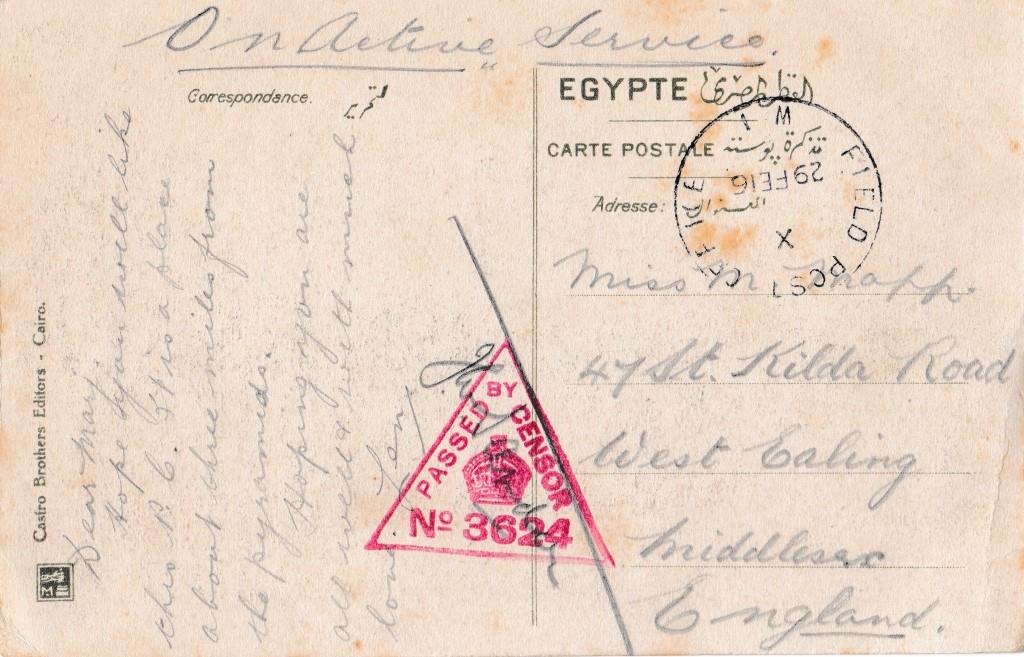 On Active Service.
Correspondance.
Dear May
Hope you will like
this P. C. It is a place
about three miles from
the pyramids.
Hoping you are
all well & with much
love Len.
Castro Brothers Editors - Cairo.
EGYPTE القطر المصري
CARTE POSTALE تذكرة بوسته
Adresse:
FIELD POST OFFICE
W 1
29 FE 16
X
Miss M.
47 St. Kilda Road
West Ealing
Middlesex
England.
PASSED BY CENSOR
No 3624